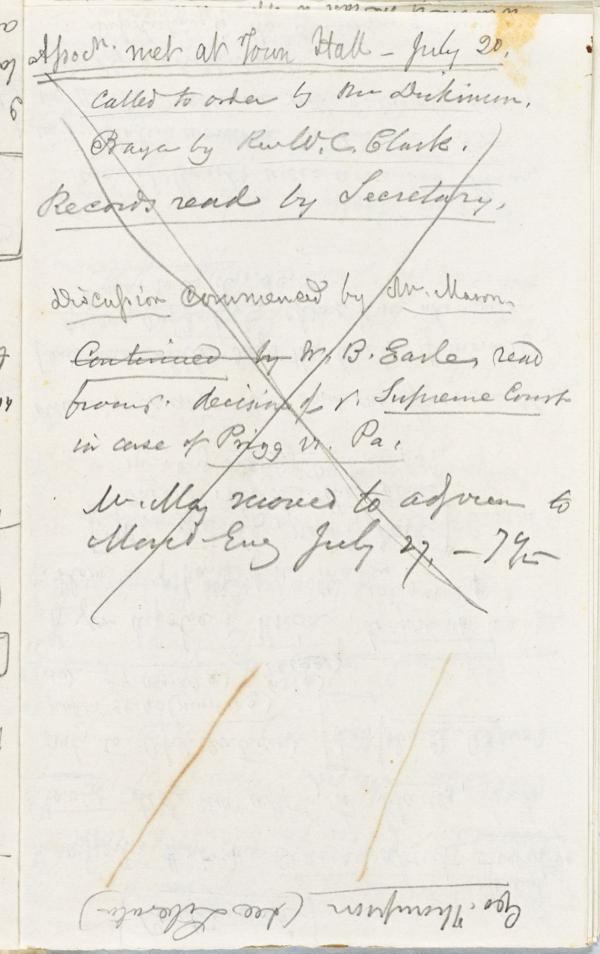 Assocn. met at Town Hall – July 20.
Called to order by Mr Dickinson.
Prayer by Rev W. C. Clark.
Records read by Secretary.
Discussion commenced by Mr. Mason.
Continued by W. B. Earle, read
from decision of Supreme Court
in case of Prigg vs. Pa.
Mr. May moved to adjourn to
Mond Eve July 27, – 7
Geo. Thompson (see Liberator)